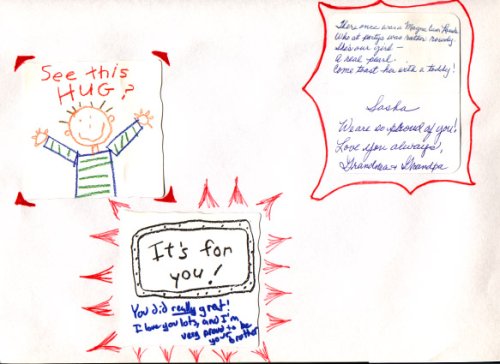 See this
HUG?
There once was a Magna Cum Laude
Who at partys was rather rowdy
She's our girl –
A real pearl.
Come toast her with a toddy!
Sasha
We are so proud of you!
Love you always,
Grandma & Grandpa
It's for
you!
You did really great!
I love you lots, and I'm
very proud to be
your brother